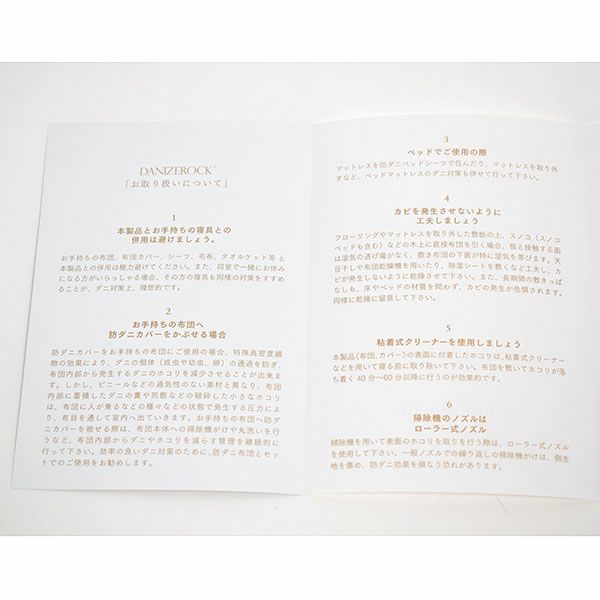 DANIZEROCK™
「お取り扱いについて」
1
本製品とお手持ちの寝具との
併用は避けましょう。
お手持ちの布団、布団カバー、シーツ、毛布、タオルケット等と
本製品との併用は極力避けてください。また、同室で一緒にお休み
になる方がいらっしゃる場合、その方の寝具も同様の対策をすすめ
ることが、ダニ対策上、理想的です。
2
お手持ちの布団へ
防ダニカバーをかぶせる場合
防ダニカバーをお手持ちの布団にご使用の場合、特殊高密度織
物の効果により、ダニの個体（成虫や幼虫、卵）の通過を防ぎ、
布団内部から発生するダニのホコリを減少させることが出来ま
す。しかし、ビニールなどの通気性のない素材と異なり、布団
内部に蓄積したダニの糞や死骸などの破砕した小さなホコリ
は、布団に人が乗るなどの種々などの状態で発生する圧力によ
り、布目を通して室内へ出ていきます。お手持ちの布団へ防
ダニカバーを被せる際は、布団本体への掃除機がけや丸洗いを行
うなど、布団内部からダニやホコリを減らす管理を継続的に
行って下さい。効率の良いダニ対策のために、防ダニ布団とセッ
トでのご使用をお勧めします。
3
ベッドでご使用の際
マットレスを防ダニベッドシーツで包んだり、マットレスを取り外
すなど、ベッドマットレスのダニ対策も併せて行って下さい。
4
カビを発生させないように
工夫しましょう
フローリングやマットレスを取り外した敷板の上、スノコ（スノコ
ベッドも含む）などの木上に直接布団を引く場合、板と接触する面
は湿気の逃げ場がなく、敷き布団の下面が特に湿気を帯びます。天
日干しや布団乾燥機を用いたり、除湿シートを敷くなど工夫し、カ
ビが発生しないように乾燥させて下さい。また、長期間の敷きっぱ
なしも、床やベッドの材質を問わず、カビの発生が危惧されます。
同様に乾燥に留意して下さい。
5
粘着式クリーナーを使用しましょう
本製品（布団、カバー）の表面に付着したホコリは、粘着式クリーナー
などを用いて寝る前に取り除いて下さい。布団を敷いてホコリが落
ち着く40分～60分以降に行うのが効果的です。
6
掃除機のノズルは
ローラー式ノズル
掃除機を用いて表面のホコリを取りを行う際は、ローラー式ノズル
を使用して下さい。一般ノズルでの繰り返しの掃除機がけは、側生
地を傷め、防ダニ効果を損なう恐れがあります。